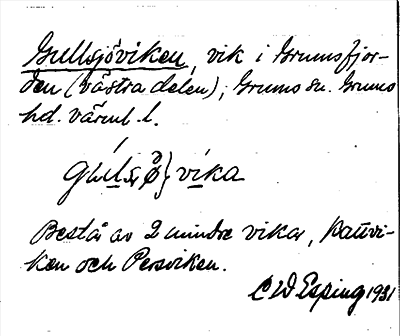 Gullsjöviken, vik i Grumsfjor-
den (västra delen); Grums sn. Grums
hd. värml. l.
vika
Består av 2 mindre vikar,
ken och Persviken.
C W Esping 1931